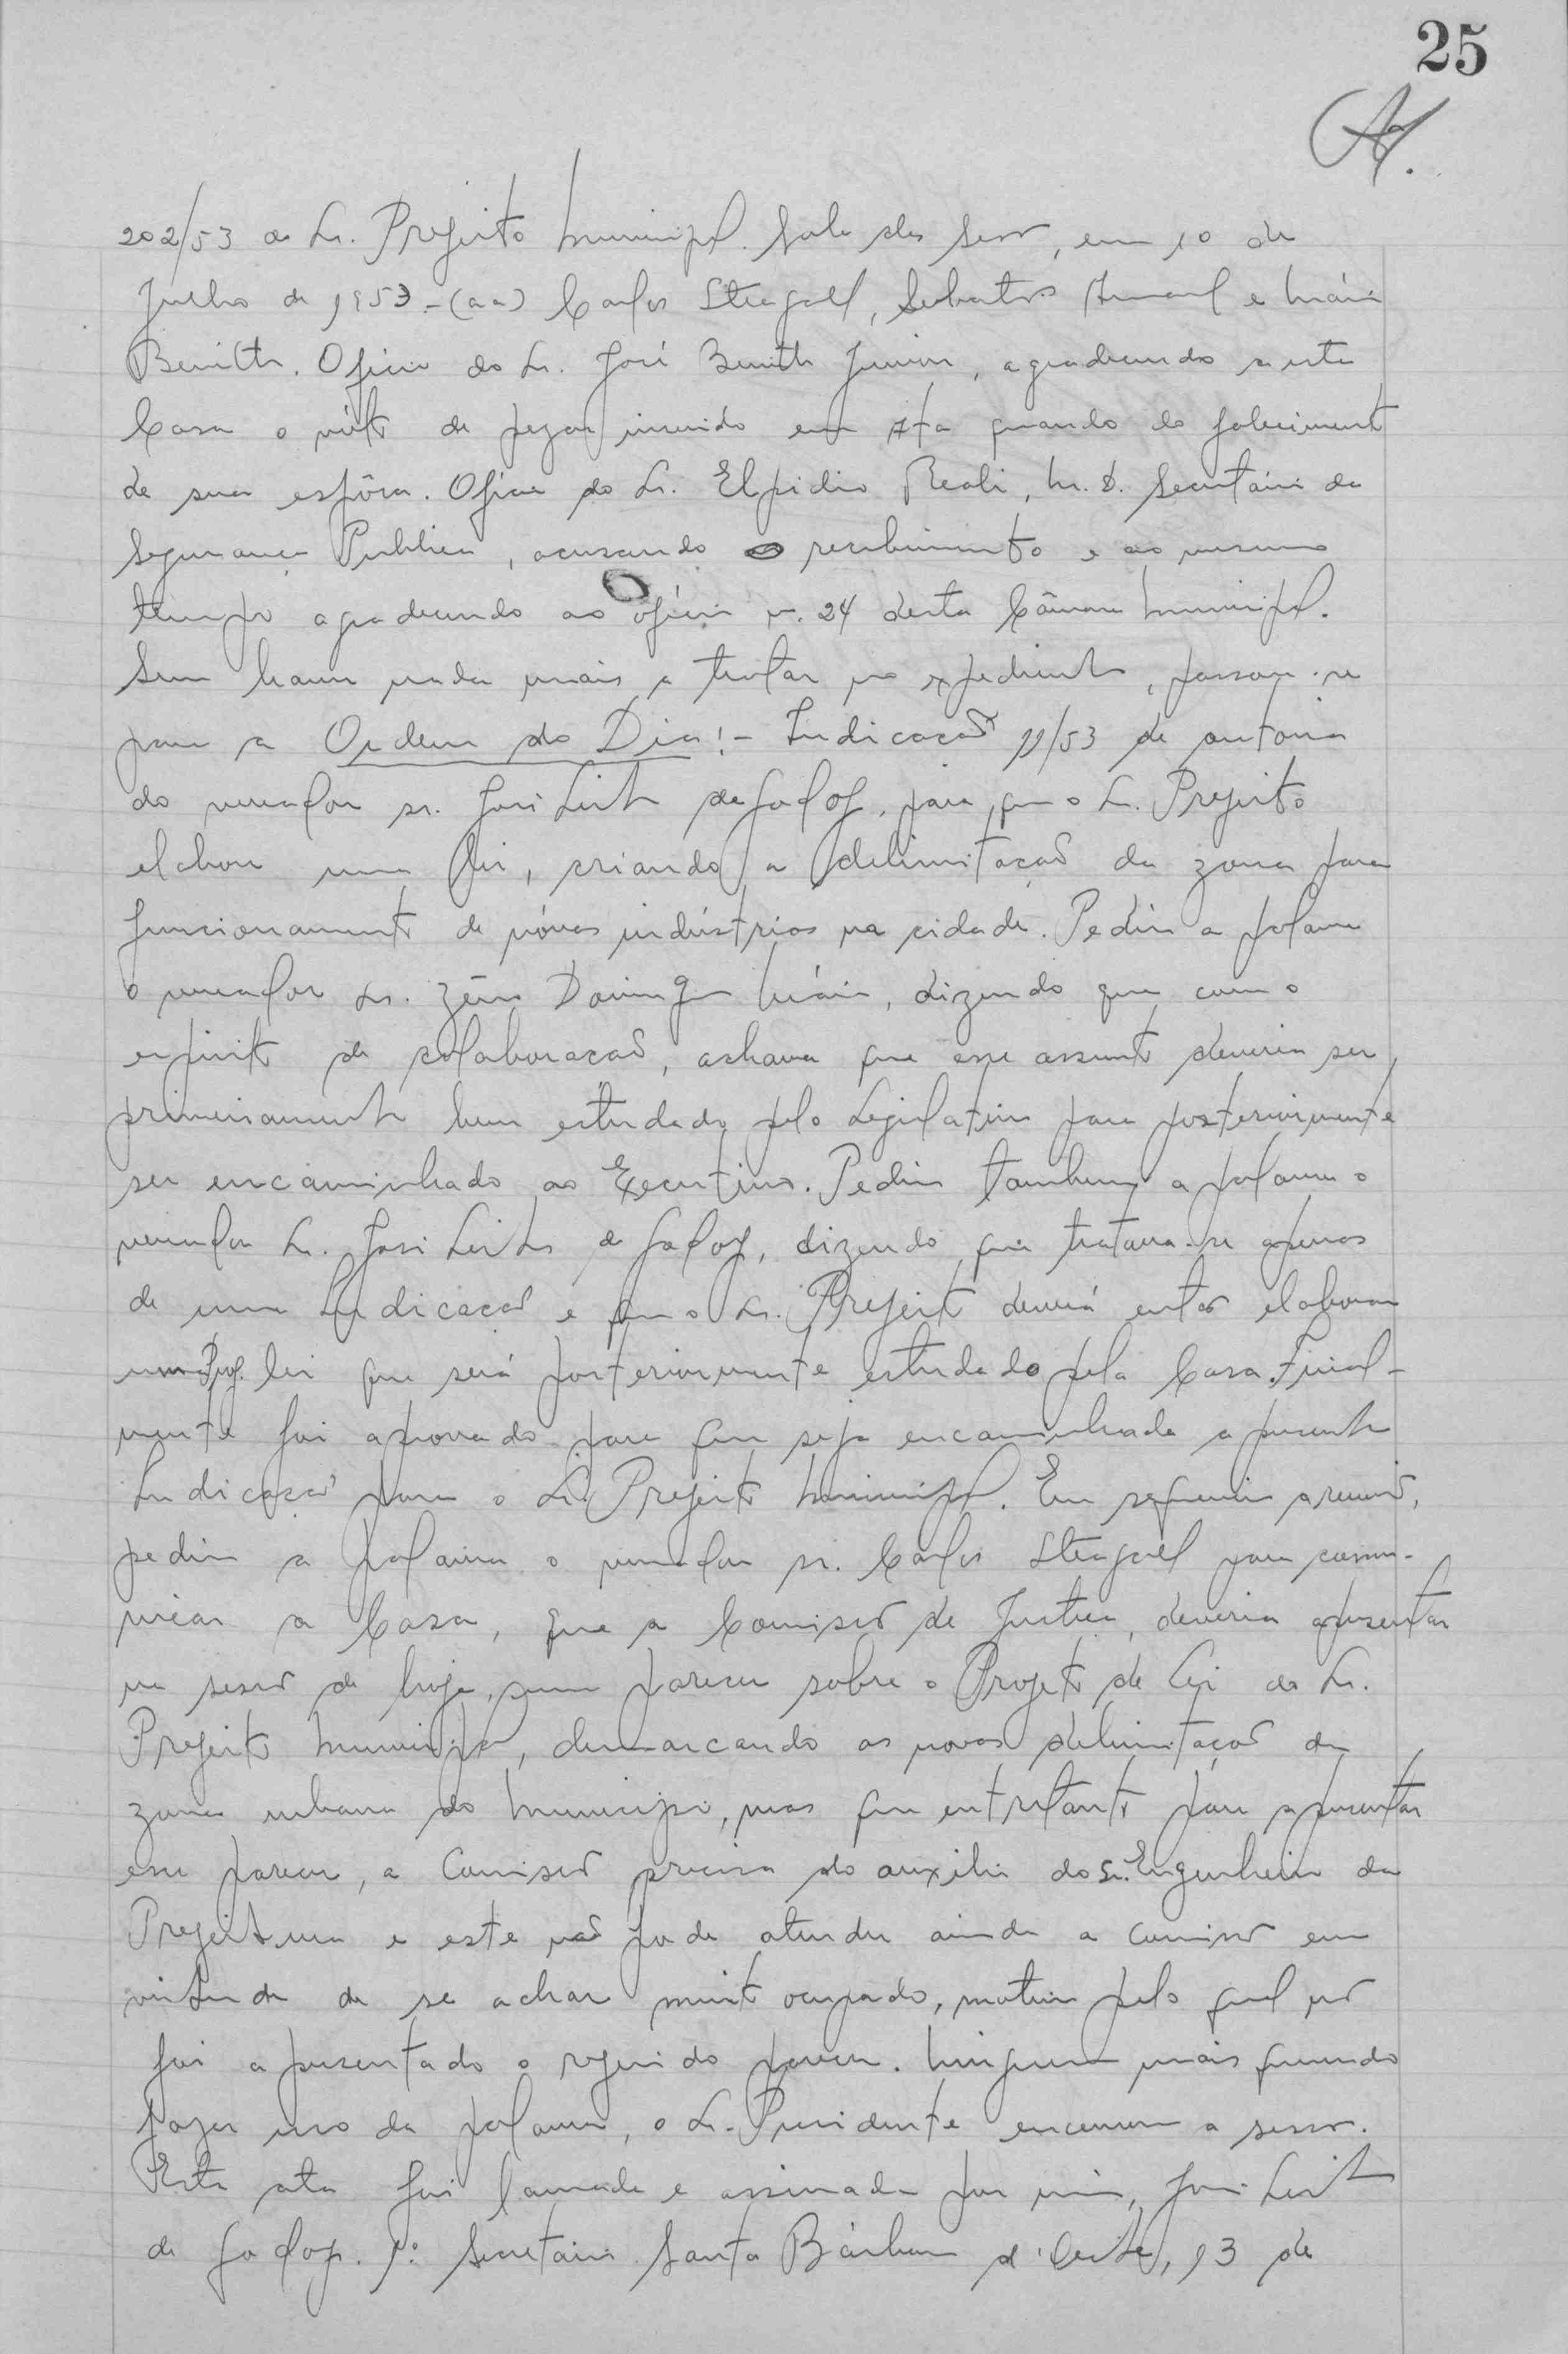 25
202/53 do Sr. Prefeito Municipal. Sala das Sess, em 10 de
Julho de 1953 - (aa) Carlos Steagall, Sebastião Amaral e Mário
Benith. Oficio do Sr. José Benith Junior, agradecendo a esta
Casa o vóto de pezar inserido em Ata quando do falecimento
de sua espôsa. Oficio do Sr. Elpidio Reali, M. D. Secretário da
Segurança Publica, acusando o recebimento e ao mesmo
tempo agradecendo ao oficio n. 24 desta Câmara Municipal.
Sem haver nada mais a tratar no expediente, passou-se
para a Ordem do Dia:- Indicação 11/53 de autoria
do vereador sr. José Leite de Godoy, para que o Sr. Prefeito
elabore uma lei, criando a delimitação da zona para
funcionamento de nóvas indústrias na cidade. Pediu a palavra
o vereador Sr. Zêno Maia, dizendo que com o
espirito de colaboração, achava que esse assunto deveria ser
primeiramente bem estudado pelo Legislativo para posteriormente
ser encaminhado ao Executivo. Pediu tambem a palavra o
vereador Sr. José Leite de Godoy, dizendo que tratava-se apenas
de uma Indicação e que o Sr. Prefeito deverá então elaborar
um Proj. lei que será posteriormente estudado pela Casa. Final-
mente foi aprovado para que seja encaminhada a presente
Indicação para o Sr. Prefeito Municipal. Em seguencia a reunião,
pediu a palavra o vereador sr. Carlos Steagall para comu-
nicar a Casa, que a Comissão de Justiça, deveria apresentar
na sessão de hoje, um parecer sobre o Projeto de Lei do Sr.
Prefeito Municipal, demarcando as novas delimitação da
zona urbana do Municipio, mas que entretanto para apresentar
esse parecer, a Comissão precisa do auxilio do Sr. Engenheiro da
Prefeitura e este não pode atender ainda a Comissão em
virtude de se achar muito ocupado, motivo pelo qual não
foi apresentado o referido parecer. Ninguem mais querendo
fazer uso da palavra, o Sr. Presidente encerrou a sessão.
Esta ata foi lavrada e assinada por mim, José Leite
de Godoy. 1º Secretário. Santa Bárbara d'Oeste, 13 de